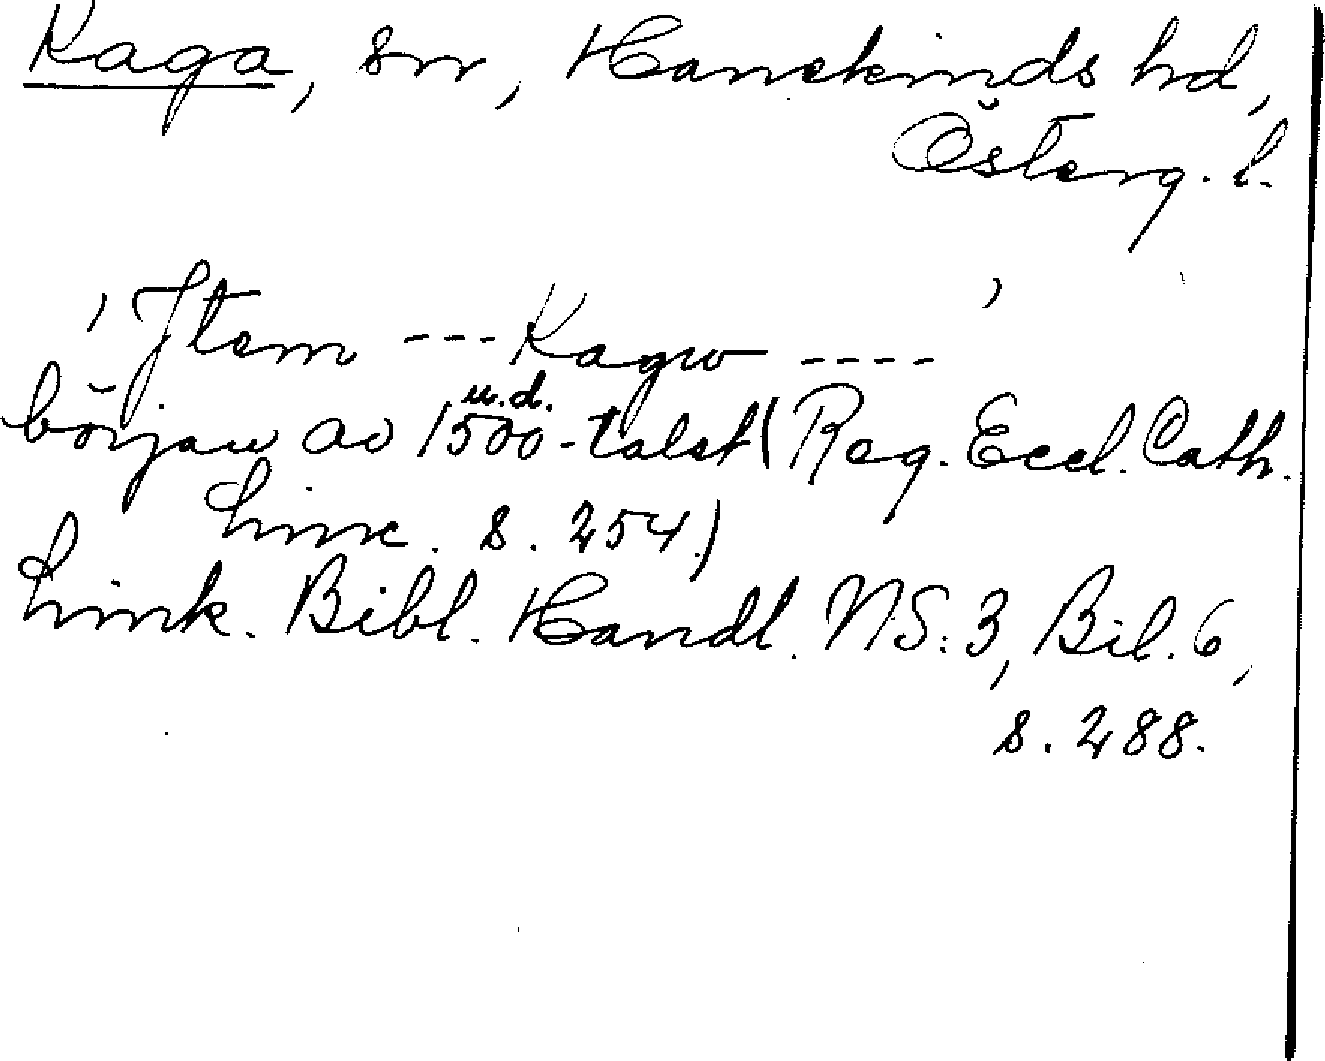 Kaga, sn, Hanekinds hd,
Österg. l.
, Item --- Kagw ---- ,
u.d.
början av 1500-talet (Reg. Eccl. Cath.
Linc. s. 254.)
Link. Bibl. Handl. NS: 3, Bil. 6,
s. 288.